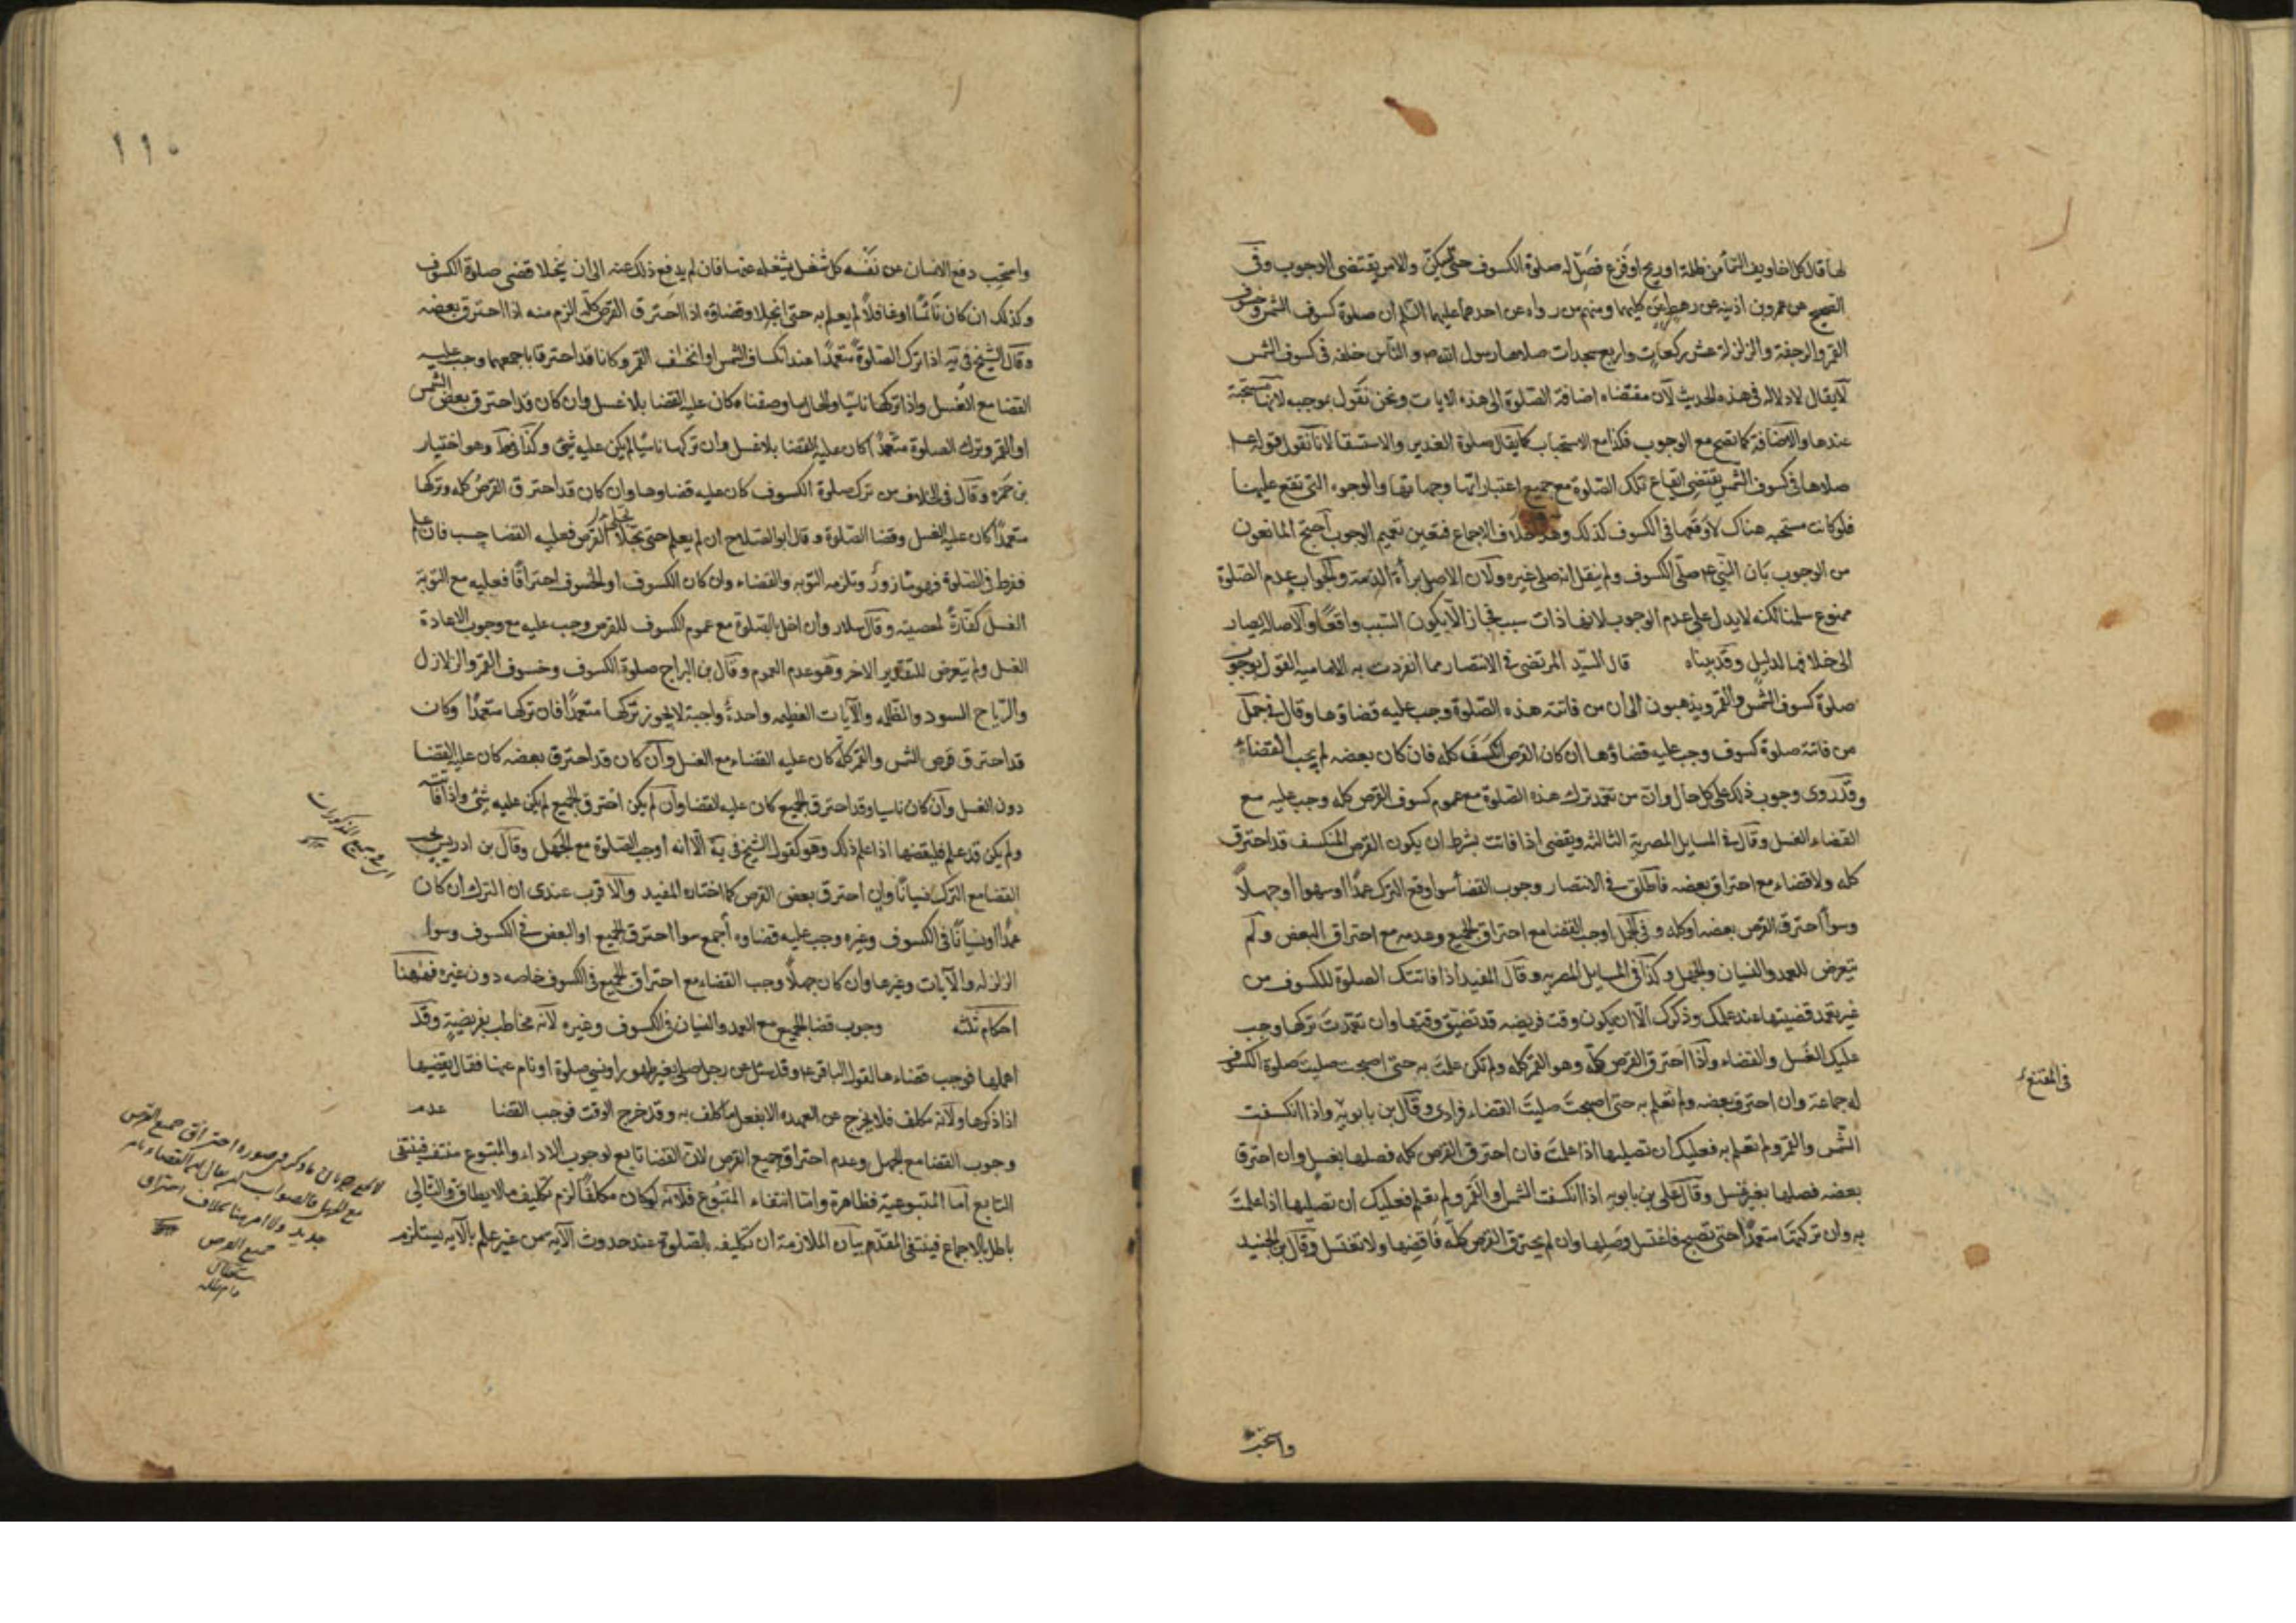 لها قال كل اخاويف السماء من ظلمة او ريح او فزع فصل له صلوة الكسوف حتى تسكن والامر يقتضى الوجوب وفى
الصحيح عن عمرو بن اذينه عن رهط عن كليهما ومنهم من رواه عن احدهما عليهما السلم ان صلوة كسوف الشمس وخسوف
القمر والرجفة والزلزلة عشر ركعات واربع سجدات صلاها رسول الله ص والناس خلفه فى كسوف الشمس
لا يقال لا دلاله فى هذه الحديث لان مقتضاه اضافة الصلوة الى هذه الايات ونحن نقول بموجبه لانها مستحبة
عندها والاضافة كما تصح مع الوجوب فكذا مع الاستحباب كما يقال صلوة الغدير والاستسقا لانا نقول قوله ع
صلاها فى كسوف الشمس يقتضى ايقاع تلك الصلوة مع جميع اعتباراتها وجهاتها والوجوه التى تقع عليها
فلو كانت مستحبه هناك لاوقعها فى الكسوف كذلك وهو خلاف الاجماع فتعين تعميم الوجوب احتج المانعون
من الوجوب بان النبى ع صلى الكسوف ولم ينقل انه صلى غيره ولان الاصل براءة الذمة والجواب عدم الصلوة
ممنوع سلمنا لكنه لا يدل على عدم الوجوب لانها ذات سبب فجاز الا يكون السبب واقعا والاصاله يصار
الى خلافها لدليل وقد بيناه قال السيد المرتضى فى الانتصار مما انفردت به الاماميه القول بوجوب
صلوة كسوف الشمس والقمر ويذهبون الى ان من فاتته هذه الصلوة وجب عليه قضاؤها وقال فى جمل
من فاتته صلوة كسوف وجب عليه قضاؤها ان كان القرص انكسف كله فان كان بعضه لم يجب القضاء
وقد روى وجوب ذلك على كل حال وان من تعمد ترك هذه الصلوة مع عموم كسوف القرص كله وجب عليه مع
القضاء الغسل وقال فى المسايل المصرية الثالثه ويقضى اذا فاتت بشرط ان يكون القرص المنكسف قد احترق
كله ولا قضاء مع احتراق بعضه فاطلق فى الانتصار وجوب القضا سوا وقع الترك عمدا او سهوا او جهلا
وسوا احترق القرص بعضه او كله وفى الجمل اوجب القضا مع احتراق الجميع وعدمه مع احتراق البعض ولم
يتعرض للعمد والنسيان والجهل وكذا فى المسايل المصريه وقال المفيد اذا فاتتك الصلوة للكسوف من
غير تعمد قضيتها عند علمك وذكرك الا ان يكون وقت فريضه قد تضيق وقتها وان تعمدت تركها وجب
عليك الغسل والقضاء واذا احترق القرص كله وهو القمر كله ولم تكن علمت به حتى اصبحت صليت صلوة الكسوف
له جماعة وان احترق بعضه ولم تعلم به حتى اصبحت صليت القضاء فرادى وقال بن بابويه واذا انكسفت
فى المقنع
الشمس والقمر ولم تعلم به فعليك ان تصليها اذا علمت فان احترق القرص كله فصلها بغسل وان احترق
بعضه فصلها بغير غسل وقال على بن بابويه اذا انكسفت الشمس او القمر ولم تعلم فعليك ان تصليها اذا علمت
به وان تركتها متعمدا حتى تصبح فاغتسل وصلها وان لم يحترق القرص كله فاقضها ولا تغتسل وقال بن الجنيد
واستحب
١١٠
واستحب دفع الانسان عن نفسه كل شغل يشغله عنها فان لم يدفع ذلك عنه الى ان ينجلا قضى صلوة الكسوف
وكذلك ان كان نائما او غافلا لم يعلم به حتى انجلا وقضاؤه اذا احترق القرص كله الزم منه اذا احترق بعضه
وقال الشيخ فى يه اذا ترك الصلوة متعمدا عند انكساف الشمس او انخساف القمر وكانا قد احترقا باجمعهما وجب عليه
القضا مع الغسل واذا تركها ناسيا والحال ما وصفناه كان عليه القضا بلا غسل وان كان قد احترق بعض الشمس
او القمر وترك الصلوة متعمدا كان عليه القضا بلا غسل وان تركها ناسيا لم يكن عليه شئ وكذا فى ط وهو اختيار
بن حمزه وقال فى الخلاف من ترك صلوة الكسوف كان عليه قضاوها وان كان قد احترق القرص كله وتركها
متعمدا كان عليه الغسل وقضا الصلوة وقال ابو الصلاح ان لم يعلم حتى تجلا القرص فعليه القضا حسب فان علم
ففرط فى الصلوة فهو مازور وتلزمه التوبه والقضاء وان كان الكسوف او الخسوف احتراقا فعليه مع التوبة
الغسل كفارة لمعصيته وقال سلار وان اخل بالصلوة مع عموم الكسوف للقرص وجب عليه مع وجوب الاعادة
الغسل ولم يتعرض للتقدير الاخر وهو عدم العموم وقال بن البراج صلوة الكسوف وخسوف القمر والزلازل
والرياح السود والظلمه والايات العظيمه واحدة واجبة لا يجوز تركها متعمدا فان تركها متعمدا وكان
قد احترق قرص الشمس والقمر كله كان عليه القضاء مع الغسل وان كان قد احترق بعضه كان عليه القضا
دون الغسل وان كان ناسيا وقد احترق الجميع كان عليه القضا وان لم يكن احترق الجميع لم يكن عليه شئ واذا فاتته
ولم يكن قد علم فليقضها اذا علم ذلك وهو كقول الشيخ فى يه الا انه اوجب الصلوة مع الجهل وقال بن ادريس يجب
القضا مع الترك نسيانا وان احترق بعض القرص كما اختاره المفيد والاقرب عندى ان الترك ان كان
عمدا او نسيانا فى الكسوف وغيره وجب عليه قضاوه اجمع سوا احترق الجميع او البعض فى الكسوف وسوا
الزلزله والايات وغيرها وان كان جهلا وجب القضاء مع احتراق الجميع فى الكسوف خاصه دون غيره فههنا
احكام ثلثه وجوب قضا الجميع مع العمد والنسيان فى الكسوف وغيره لانه مخاطب بفريضة وقد
اهملها فوجب قضاءها لقول الباقر ع وقد سئل عن رجل صلى بغير طهور او نسى صلوة او نام عنها فقال يقضيها
اذا ذكرها ولانه مكلف فلا يخرج عن العهده الا بفعل ما كلف به وقد خرج الوقت فوجب القضا عدم
وجوب القضا مع الجهل وعدم احتراق جميع القرص لان القضا تابع لوجوب الاداء والمتبوع منتف فينتفى
التابع اما المتبوعية فظاهرة واما انتفاء المتبوع فلانه لو كان مكلفا لزم تكليف ما لا يطاق والتالى
باطل بالاجماع فينتفى المقدم بيان الملازمة ان تكليفه بالصلوة عند حدوث الايه من غير علم بالايه يستلزم
جميع المذكورات
صورة احتراق جميع القرص
مع الجهل فالصواب ان يقال القضاء بامر
جديد ولا امر هنا بخلاف احتراق
جميع القرص
دام ظله